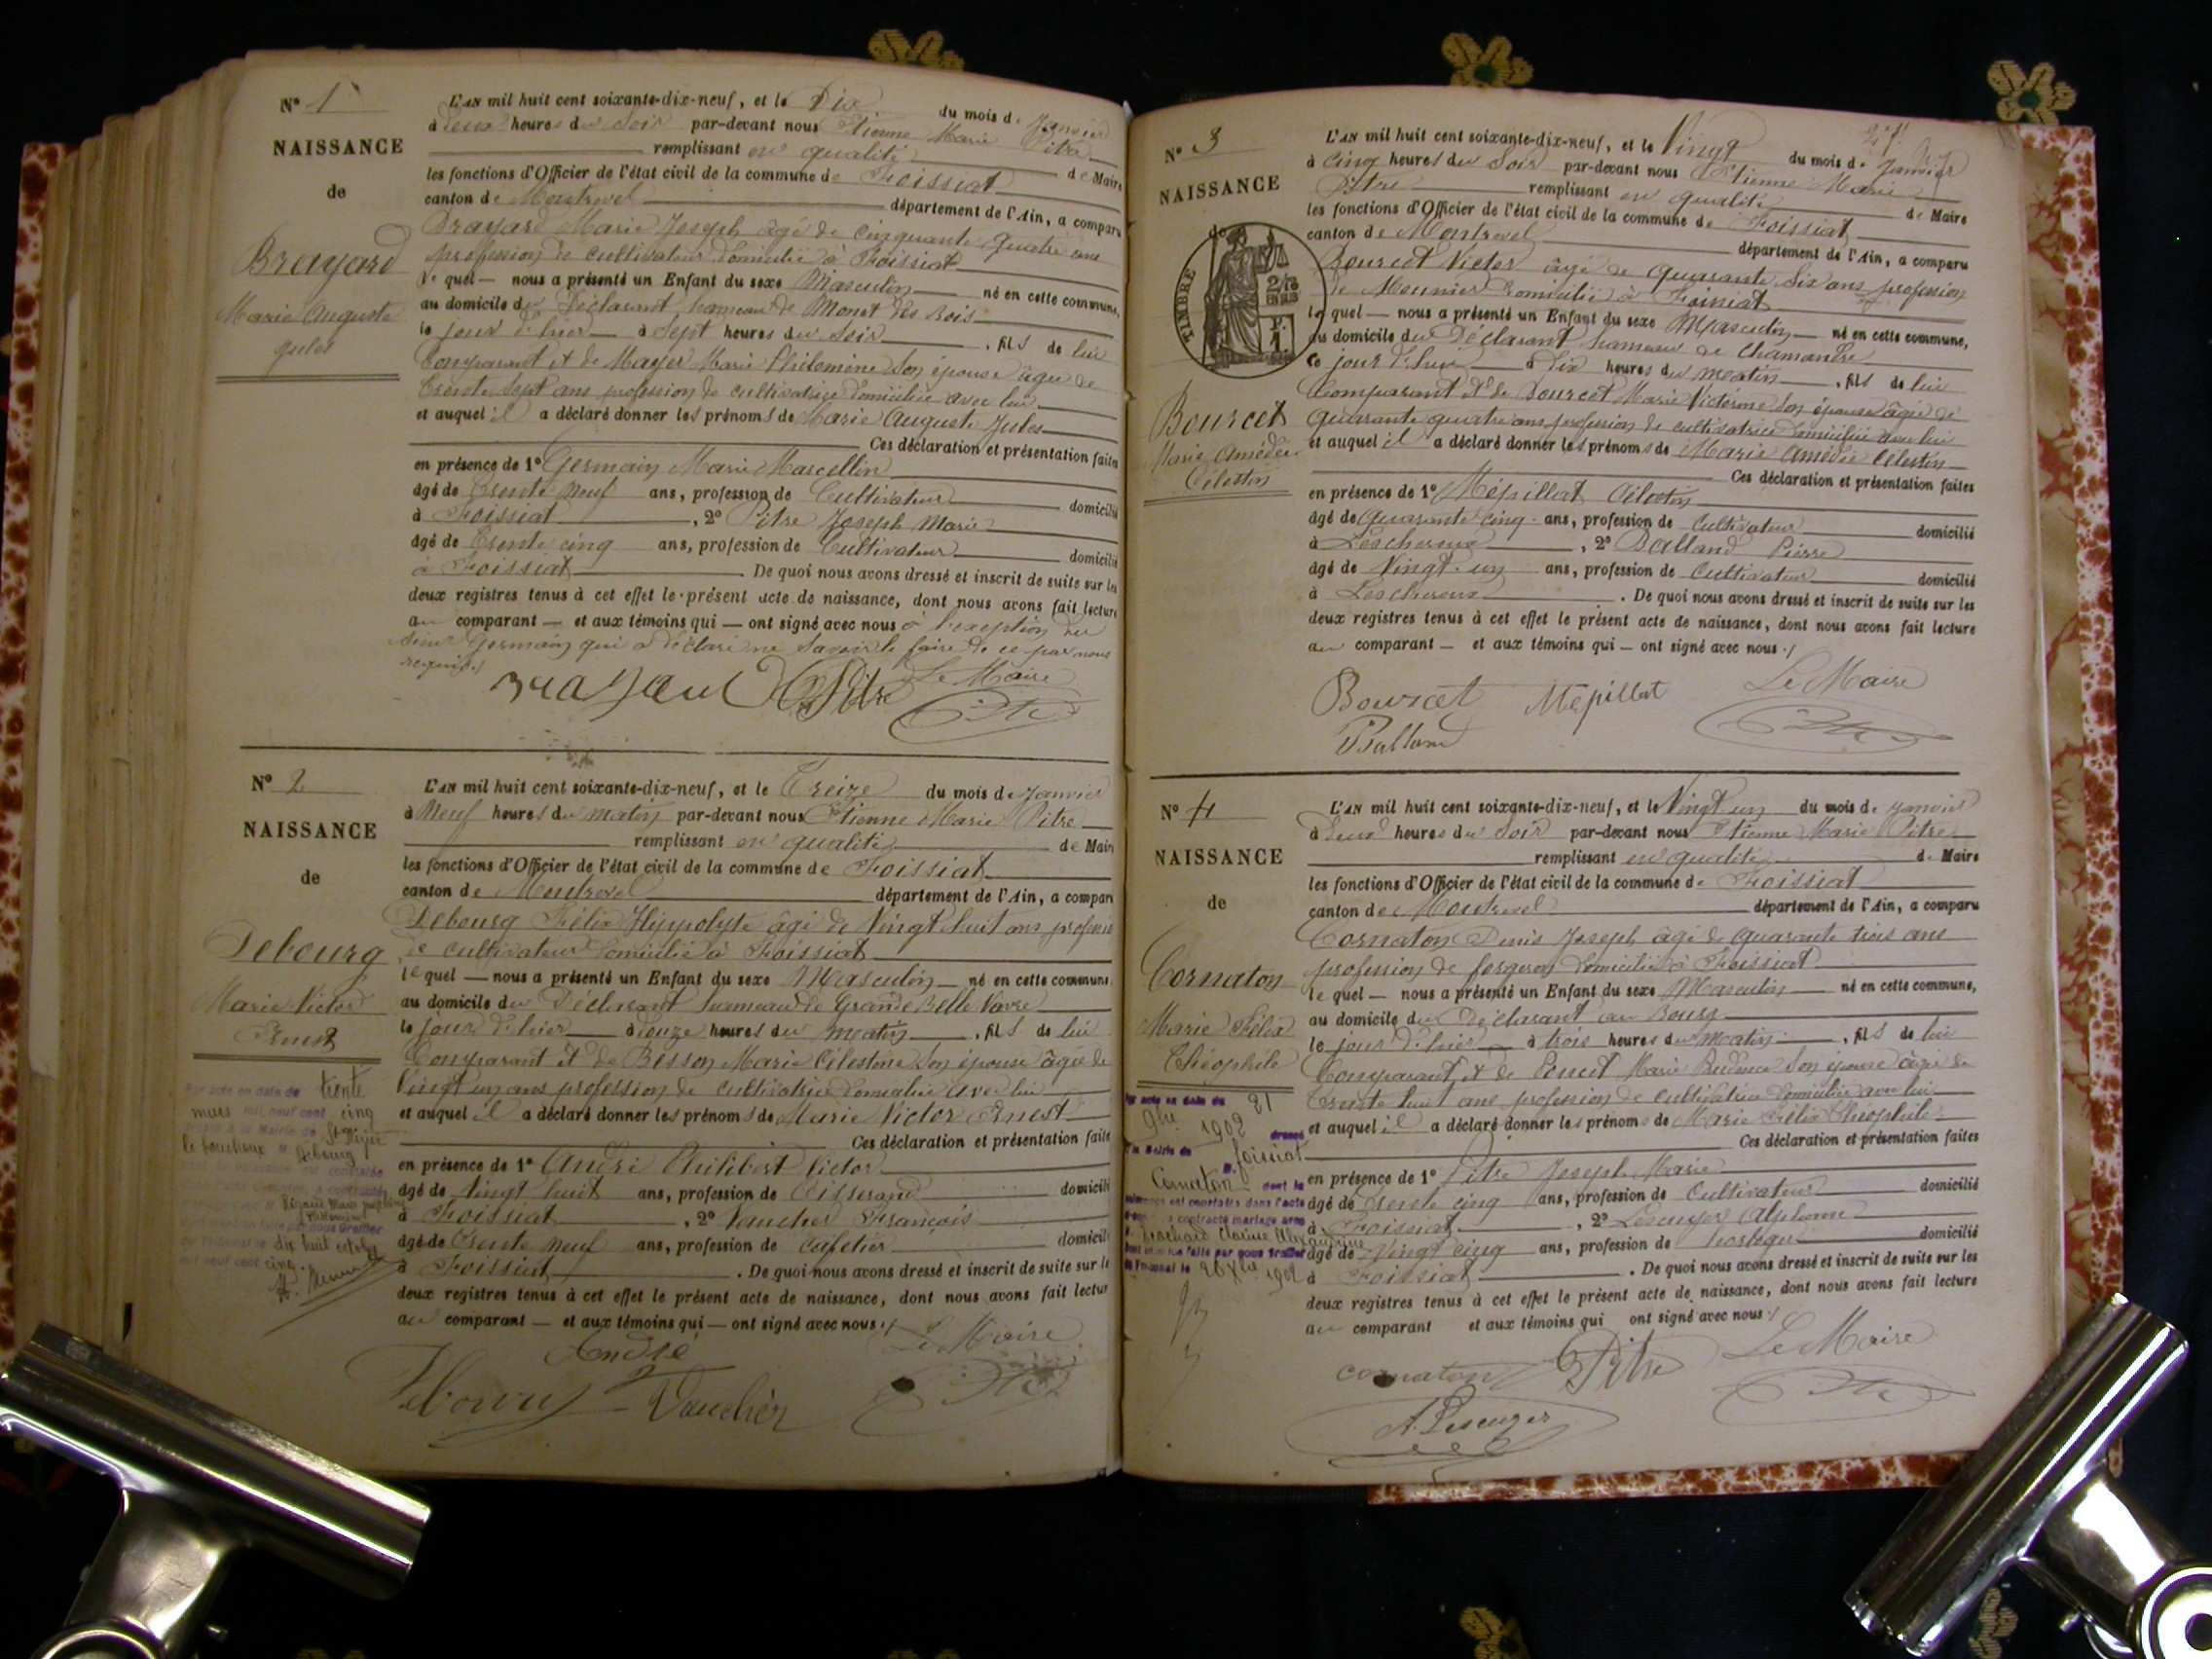 N° 1
NAISSANCE
de
Brayard
Marie Auguste
Jules
L'AN mil huit cent soixante-dix-neuf, et le Dix du mois de Janvier
à Deux heures du Soir par-devant nous Etienne Marie Pitre
remplissant en qualité de Maire
les fonctions d'Officier de l'état civil de la commune de Foissiat
canton de Montrevel département de l'Ain, a comparu
Brayard Marie Joseph âgé de Cinquante Quatre ans
profession de Cultivateur domicilié à Foissiat
le quel — nous a présenté un Enfant du sexe Masculin né en cette commune,
au domicile du Déclarant hameau de Monet des Bois
le jour d'hier à Sept heures du Soir, fils de lui
Comparant et de Mayer Marie Philomène Son épouse âgée de
Trente Sept ans profession de cultivatrice domiciliée avec lui
et auquel il a déclaré donner les prénoms de Marie Auguste Jules
Ces déclaration et présentation faites
en présence de 1° Germain Marie Marcellin
âgé de Trente neuf ans, profession de Cultivateur domicilié
à Foissiat, 2° Pitre Joseph Marie
âgé de Trente cinq ans, profession de Cultivateur domicilié
à Foissiat. De quoi nous avons dressé et inscrit de suite sur les
deux registres tenus à cet effet le présent acte de naissance, dont nous avons fait lecture
au comparant — et aux témoins qui — ont signé avec nous à l'exception du
sieur Germain qui a déclaré ne Savoir le faire de ce par nous
requis
Pitre Le Maire
N° 2
NAISSANCE
de
Debourg
Marie Victor
Ernest
L'AN mil huit cent soixante-dix-neuf, et le Treize du mois de Janvier
à Neuf heures du matin par-devant nous Etienne Marie Pitre
remplissant en qualité de Maire
les fonctions d'Officier de l'état civil de la commune de Foissiat
canton de Montrevel département de l'Ain, a comparu
Debourg Félix Hippolyte âgé de Vingt huit ans profession
de cultivateur domicilié à Foissiat
le quel — nous a présenté un Enfant du sexe Masculin — né en cette commune
au domicile du Déclarant hameau de Grande Belle Vavre
le jour d'hier à onze heures du matin, fils de lui
Comparant et de Besson Marie Célestine Son épouse âgée de
Vingt un ans profession de cultivatrice domiciliée avec lui
et auquel il a déclaré donner les prénoms de Marie Victor Ernest
Ces déclaration et présentation faites
en présence de 1° André Philibert Victor
âgé de Vingt huit ans, profession de Tisserand domicilié
à Foissiat, 2° Vaucher François
âgé de Trente neuf ans, profession de cafetier domicilié
à Foissiat. De quoi nous avons dressé et inscrit de suite sur les
deux registres tenus à cet effet le présent acte de naissance, dont nous avons fait lecture
au comparant — et aux témoins qui — ont signé avec nous
André Le Maire
Vaucher
Par acte en date du trente
mars mil neuf cent cinq
dix huit octobre
mil neuf cent cinq.
N° 3
NAISSANCE
de
TIMBRE
Bourcet
Marie Amédée
Célestin
L'AN mil huit cent soixante-dix-neuf, et le Vingt du mois de Janvier
à Cinq heures du Soir par-devant nous Etienne Marie
Pitre remplissant en qualité de Maire
les fonctions d'Officier de l'état civil de la commune de Foissiat
canton de Montrevel département de l'Ain, a comparu
Bourcet Victor âgé de Quarante Six ans profession
de Meunier domicilié à Foissiat
le quel — nous a présenté un Enfant du sexe Masculin — né en cette commune,
au domicile du Déclarant hameau de Chamandre
ce jour d'hui à Dix heures du matin, fils de lui
Comparant et de Bourcet Marie Victorine Son épouse âgée de
Quarante quatre ans profession de cultivatrice domiciliée avec lui
et auquel il a déclaré donner les prénoms de Marie Amédée Célestin
Ces déclaration et présentation faites
en présence de 1° Mépillat Célestin
âgé de Quarante cinq ans, profession de Cultivateur domicilié
à Lescheroux, 2° Balland Pierre
âgé de Vingt un ans, profession de Cultivateur domicilié
à Lescheroux. De quoi nous avons dressé et inscrit de suite sur les
deux registres tenus à cet effet le présent acte de naissance, dont nous avons fait lecture
au comparant — et aux témoins qui — ont signé avec nous
Bourcet Mepillat Le Maire
N° 4
NAISSANCE
de
Cornaton
Marie Félix
Théophile
L'AN mil huit cent soixante-dix-neuf, et le Vingt un du mois de Janvier
à Deux heures du Soir par-devant nous Etienne Marie Pitre
remplissant en qualité de Maire
les fonctions d'Officier de l'état civil de la commune de Foissiat
canton de Montrevel département de l'Ain, a comparu
Cornaton Denis Joseph âgé de Quarante trois ans
profession de forgeron domicilié à Foissiat
le quel — nous a présenté un Enfant du sexe Masculin — né en cette commune,
au domicile du Déclarant au Bourg
le jour d'hier à trois heures du matin, fils de lui
Comparant et de Poncet Marie Prudence Son épouse âgée de
Trente huit ans profession de cultivatrice domiciliée avec lui
et auquel il a déclaré donner les prénoms de Marie Félix Théophile
Ces déclaration et présentation faites
en présence de 1° Pitre Joseph Marie
âgé de Trente cinq ans, profession de Cultivateur domicilié
à Foissiat, 2° Lescuyer Alphonse
âgé de Vingt cinq ans, profession de domicilié
à Foissiat. De quoi nous avons dressé et inscrit de suite sur les
deux registres tenus à cet effet le présent acte de naissance, dont nous avons fait lecture
au comparant et aux témoins qui ont signé avec nous
cornaton Pitre Le Maire
A. Lescuyer
Par acte en date du 21
9bre 1902 dressé
à la Mairie de Foissiat
Cornaton dont la
naissance est constatée dans l'acte
a contracté mariage avec